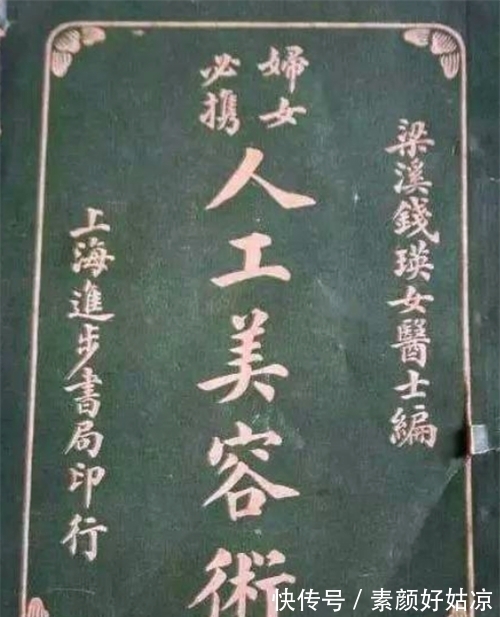 梁溪錢瑛女醫士編
婦女
必攜
人工美容術
上海進步書局印行
快传号/素颜好姑凉